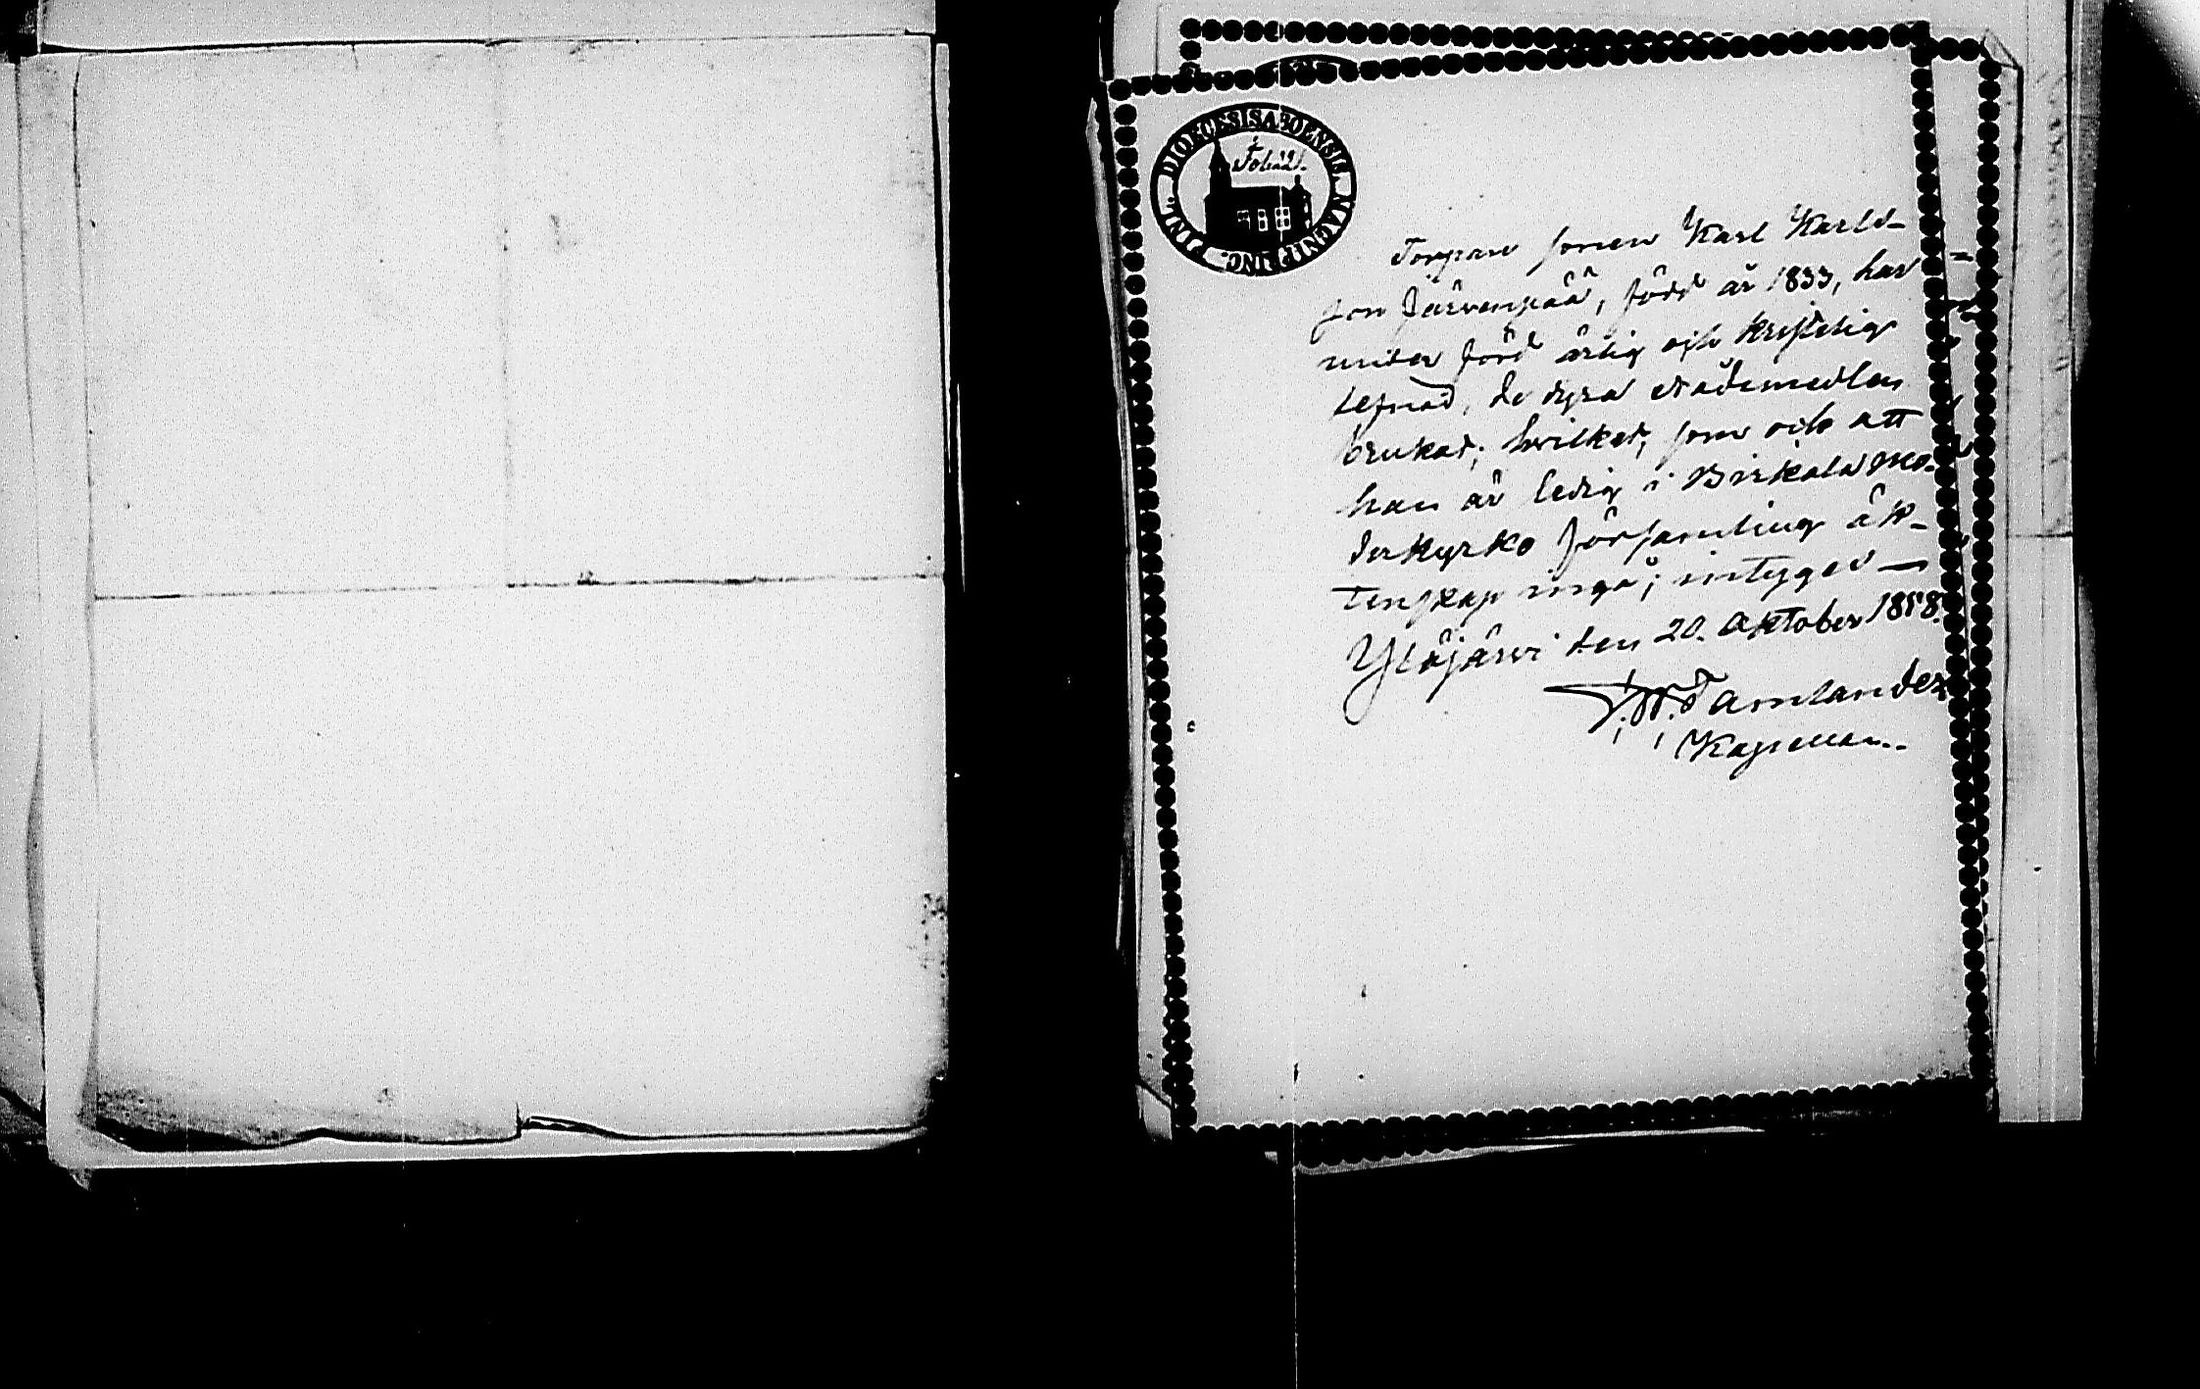 DIOECESIS ABOENSIS. MAGNI PRINC. FINL.
Fol: 221.
Torpare sonen Karl Karls-
son Järvenpää, född år 1833, har
under förd ärlig och kristelig
lefnad, de dyra nådemedlen
brukat; hvilket, som och att
han är ledig i Birkala mo-
derkyrko församling äk-
tenskap ingå; intygas —
Ylöjärvi den 20. Oktober 1858.
F. W. Tamlander
Kapellan.